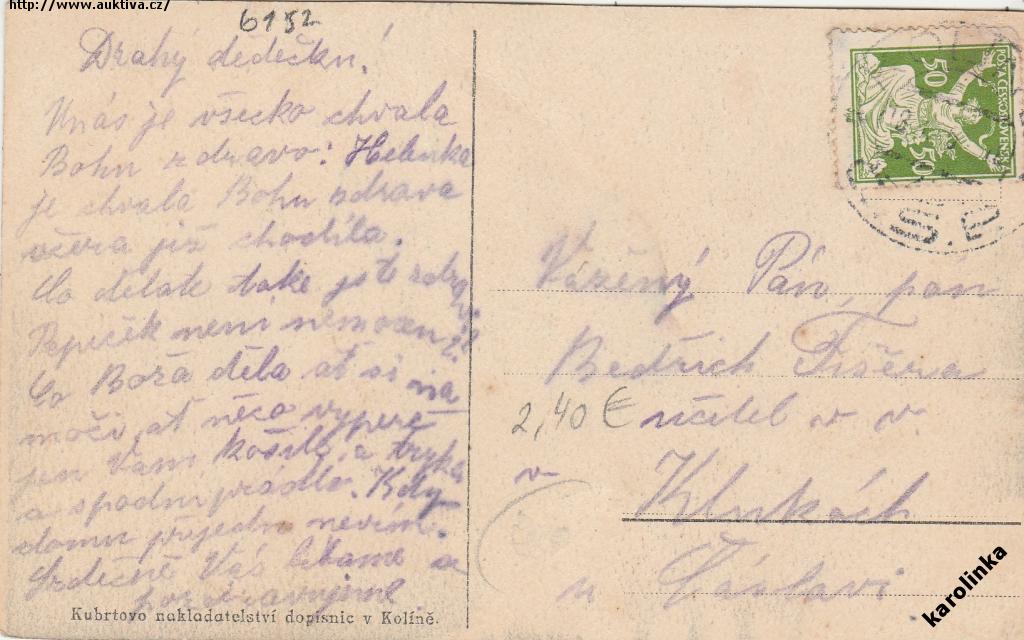 http://www.auktiva.cz/
6152
Drahý dědečku!
U nás je všecko chvala
Bohu zdravo: Helenka
je chvala Bohu zdrava
včera již chodila.
Co děláte také jste zdráv.
Pepíček není nemocen?
Co Boža děla ať si na
močí, ať něco vypere
jen Vam košile, a tryka
a spodní prádlo. Kdy
domu přijedu nevím.
Srdečně Vás líbame a
pozdravujeme
Kubrtovo nakladatelství dopisnic v Kolíně.
POŠTA ČESKOSLOVENSKÁ
50
50
Vážený Pán, pan
Bedřich Fišera
2,40 € učitel v v.
v Klukách
u Čáslavi
karolinka